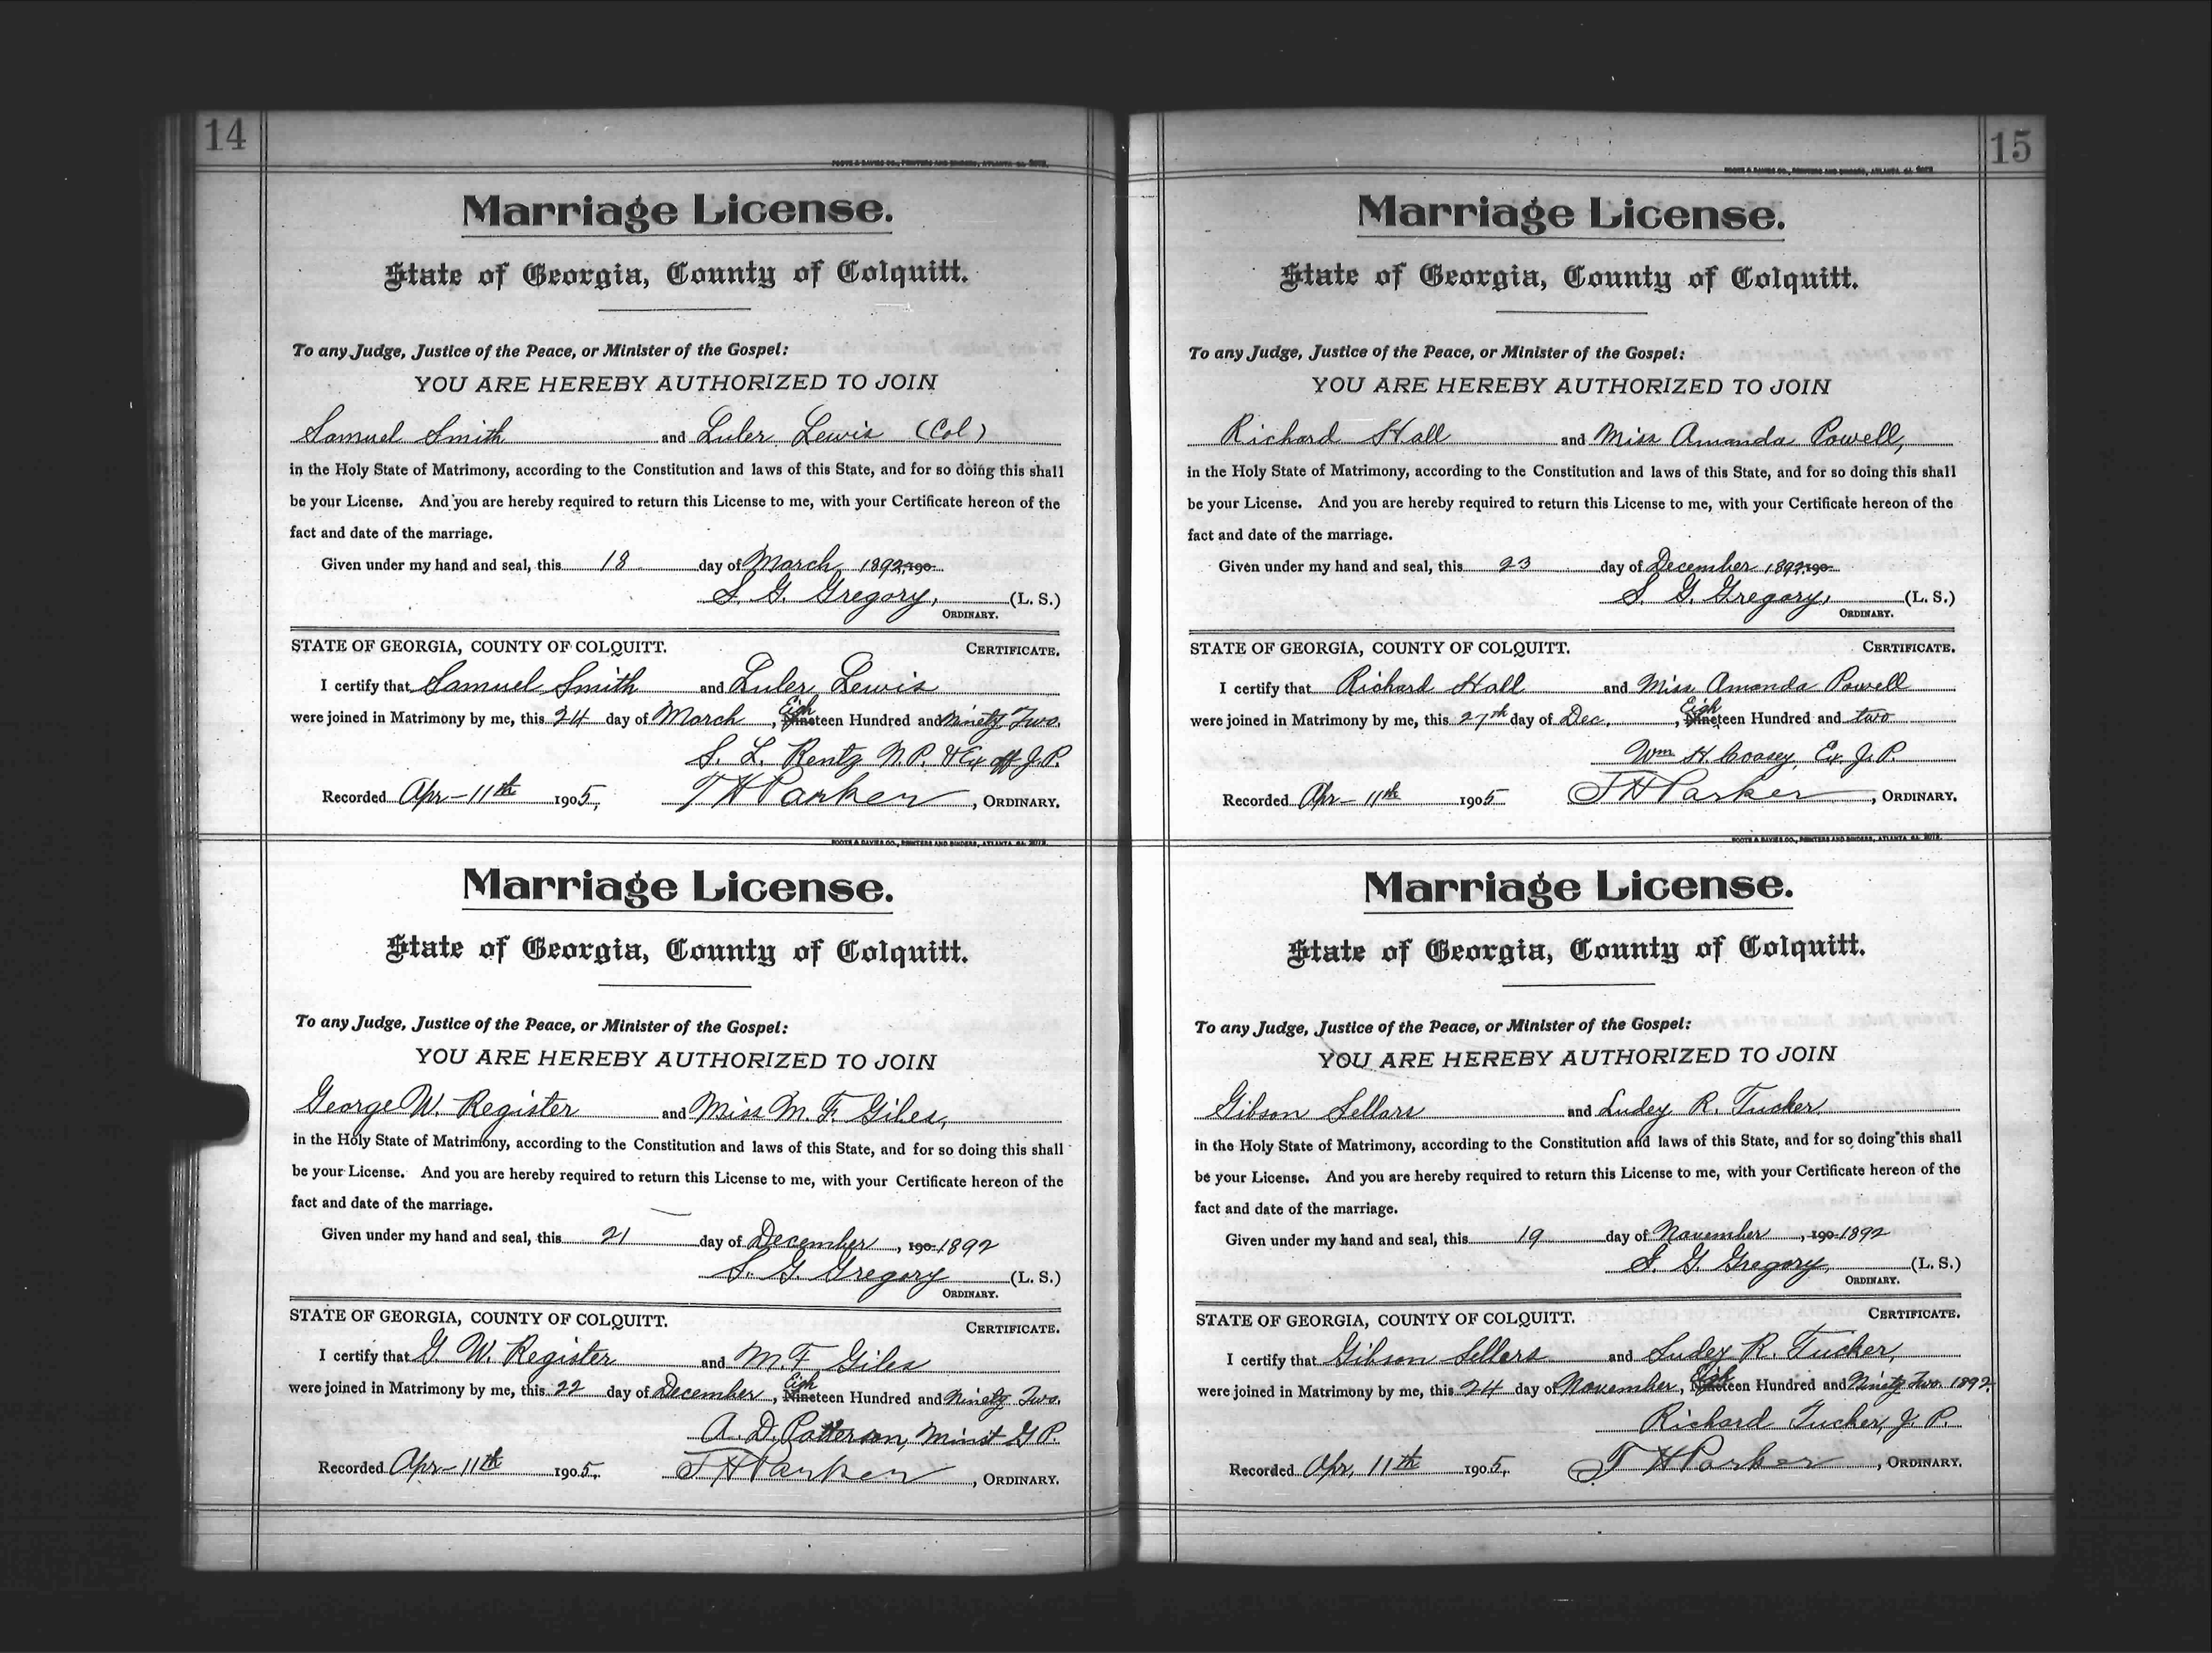 14
FOOTE & DAVIES CO., PRINTERS AND BINDERS, ATLANTA, GA.
Marriage License.
State of Georgia, County of Colquitt.
To any Judge, Justice of the Peace, or Minister of the Gospel:
YOU ARE HEREBY AUTHORIZED TO JOIN
Samuel Smith and Luler Lewis (Col)
in the Holy State of Matrimony, according to the Constitution and laws of this State, and for so doing this shall
be your License. And you are hereby required to return this License to me, with your Certificate hereon of the
fact and date of the marriage.
Given under my hand and seal, this 18 day of March 1892, 190
S. G. Gregory, (L. S.)
ORDINARY.
STATE OF GEORGIA, COUNTY OF COLQUITT. CERTIFICATE.
I certify that Samuel Smith and Luler Lewis
were joined in Matrimony by me, this 24 day of March, Eighteen Hundred and Ninety Two.
S. L. Rentz N.P. & Ex off J.P.
Recorded Apr-11th 1905, T H Parker, ORDINARY.
FOOTE & DAVIES CO., PRINTERS AND BINDERS, ATLANTA, GA.
Marriage License.
State of Georgia, County of Colquitt.
To any Judge, Justice of the Peace, or Minister of the Gospel:
YOU ARE HEREBY AUTHORIZED TO JOIN
George W. Register and Miss M. F. Giles,
in the Holy State of Matrimony, according to the Constitution and laws of this State, and for so doing this shall
be your License. And you are hereby required to return this License to me, with your Certificate hereon of the
fact and date of the marriage.
Given under my hand and seal, this 21 day of December, 190 1892
S. G. Gregory (L. S.)
ORDINARY.
STATE OF GEORGIA, COUNTY OF COLQUITT. CERTIFICATE.
I certify that G. W. Register and M. F. Giles
were joined in Matrimony by me, this 22 day of December, Eighteen Hundred and Ninety Two.
A. D. Patterson, Minst G P.
Recorded Apr-11th 1905, T H Parker, ORDINARY.
15
FOOTE & DAVIES CO., PRINTERS AND BINDERS, ATLANTA, GA.
Marriage License.
State of Georgia, County of Colquitt.
To any Judge, Justice of the Peace, or Minister of the Gospel:
YOU ARE HEREBY AUTHORIZED TO JOIN
Richard Hall and Miss Amanda Powell,
in the Holy State of Matrimony, according to the Constitution and laws of this State, and for so doing this shall
be your License. And you are hereby required to return this License to me, with your Certificate hereon of the
fact and date of the marriage.
Given under my hand and seal, this 23 day of December 1892, 190
S. G. Gregory, (L. S.)
ORDINARY.
STATE OF GEORGIA, COUNTY OF COLQUITT. CERTIFICATE.
I certify that Richard Hall and Miss Amanda Powell
were joined in Matrimony by me, this 27th day of Dec., Eighteen Hundred and two
Wm H. Coosey, Ex. J. P.
Recorded Apr-11th 1905 T H Parker, ORDINARY.
FOOTE & DAVIES CO., PRINTERS AND BINDERS, ATLANTA, GA.
Marriage License.
State of Georgia, County of Colquitt.
To any Judge, Justice of the Peace, or Minister of the Gospel:
YOU ARE HEREBY AUTHORIZED TO JOIN
Gibson Sellars and Ludey R. Tucker,
in the Holy State of Matrimony, according to the Constitution and laws of this State, and for so doing this shall
be your License. And you are hereby required to return this License to me, with your Certificate hereon of the
fact and date of the marriage.
Given under my hand and seal, this 19 day of November, 190 1892
S. G. Gregory, (L. S.)
ORDINARY.
STATE OF GEORGIA, COUNTY OF COLQUITT. CERTIFICATE.
I certify that Gibson Sellers and Ludey R. Tucker,
were joined in Matrimony by me, this 24 day of November, Eighteen Hundred and Ninety Two 1892.
Richard Tucker, J. P.
Recorded Apr, 11th 1905, T H Parker, ORDINARY.